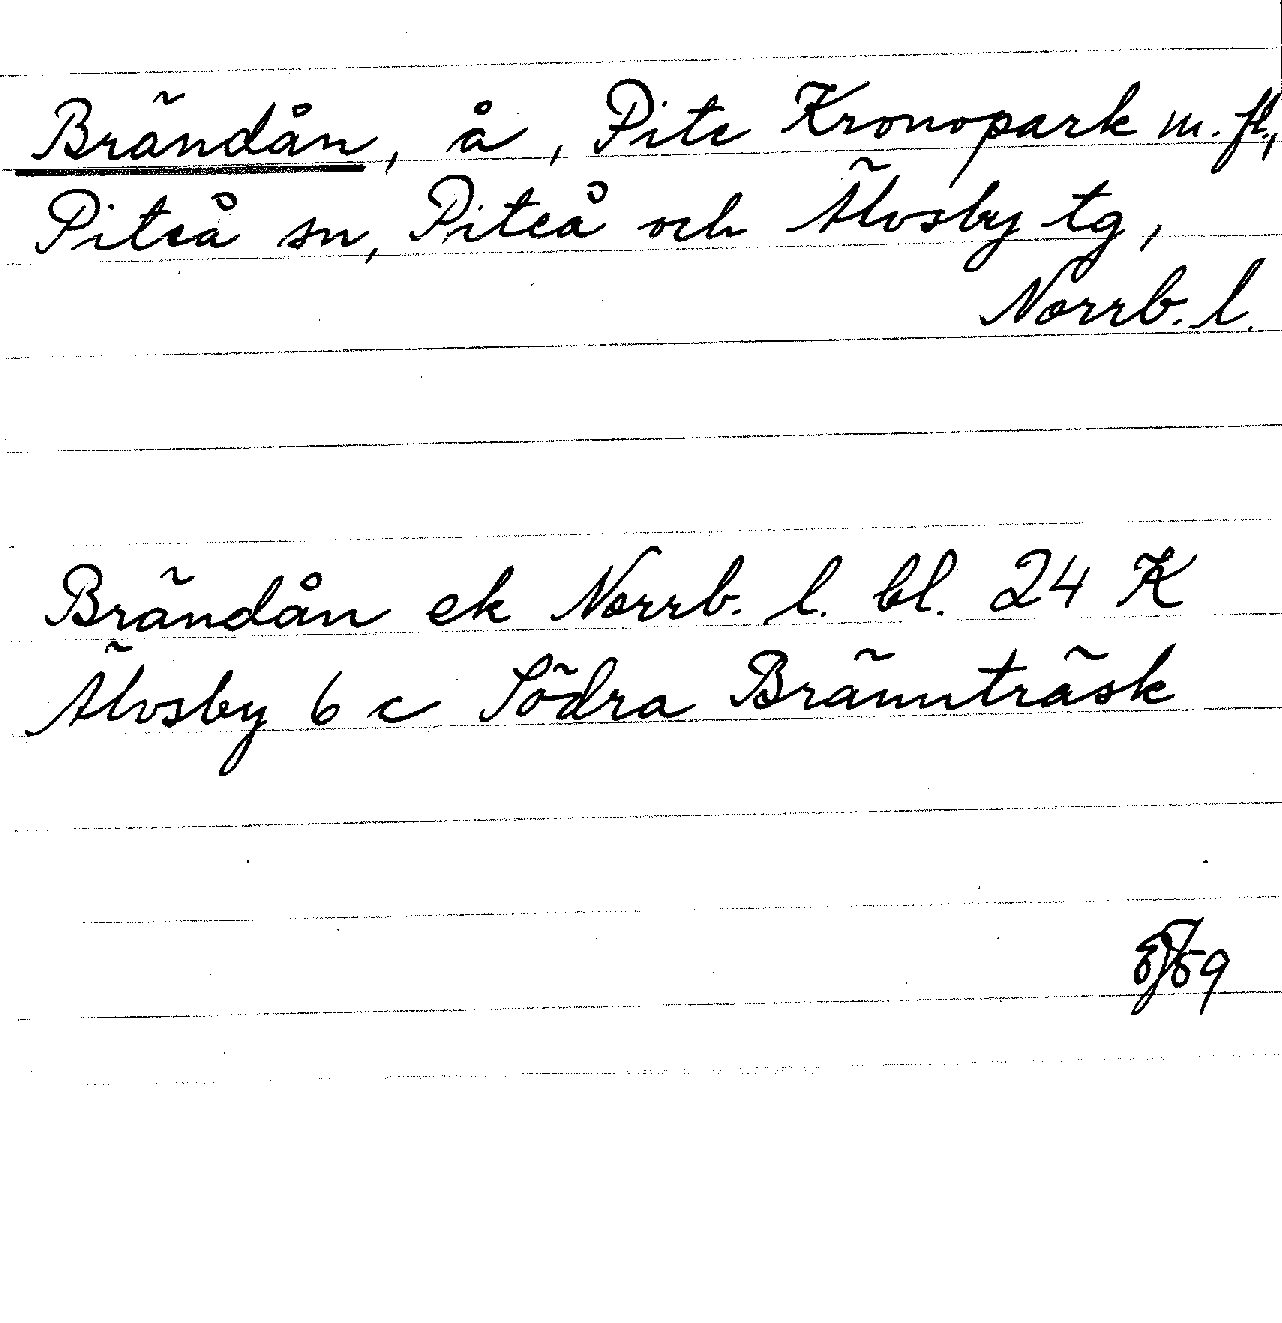 Brändån, å, Pite Kronopark m. fl.,
Piteå sn, Piteå och Älvsby tg,
Norrb. l.
Brändån ek Norrb. l. bl. 24 K
Älvsby 6 c Södra Brännträsk